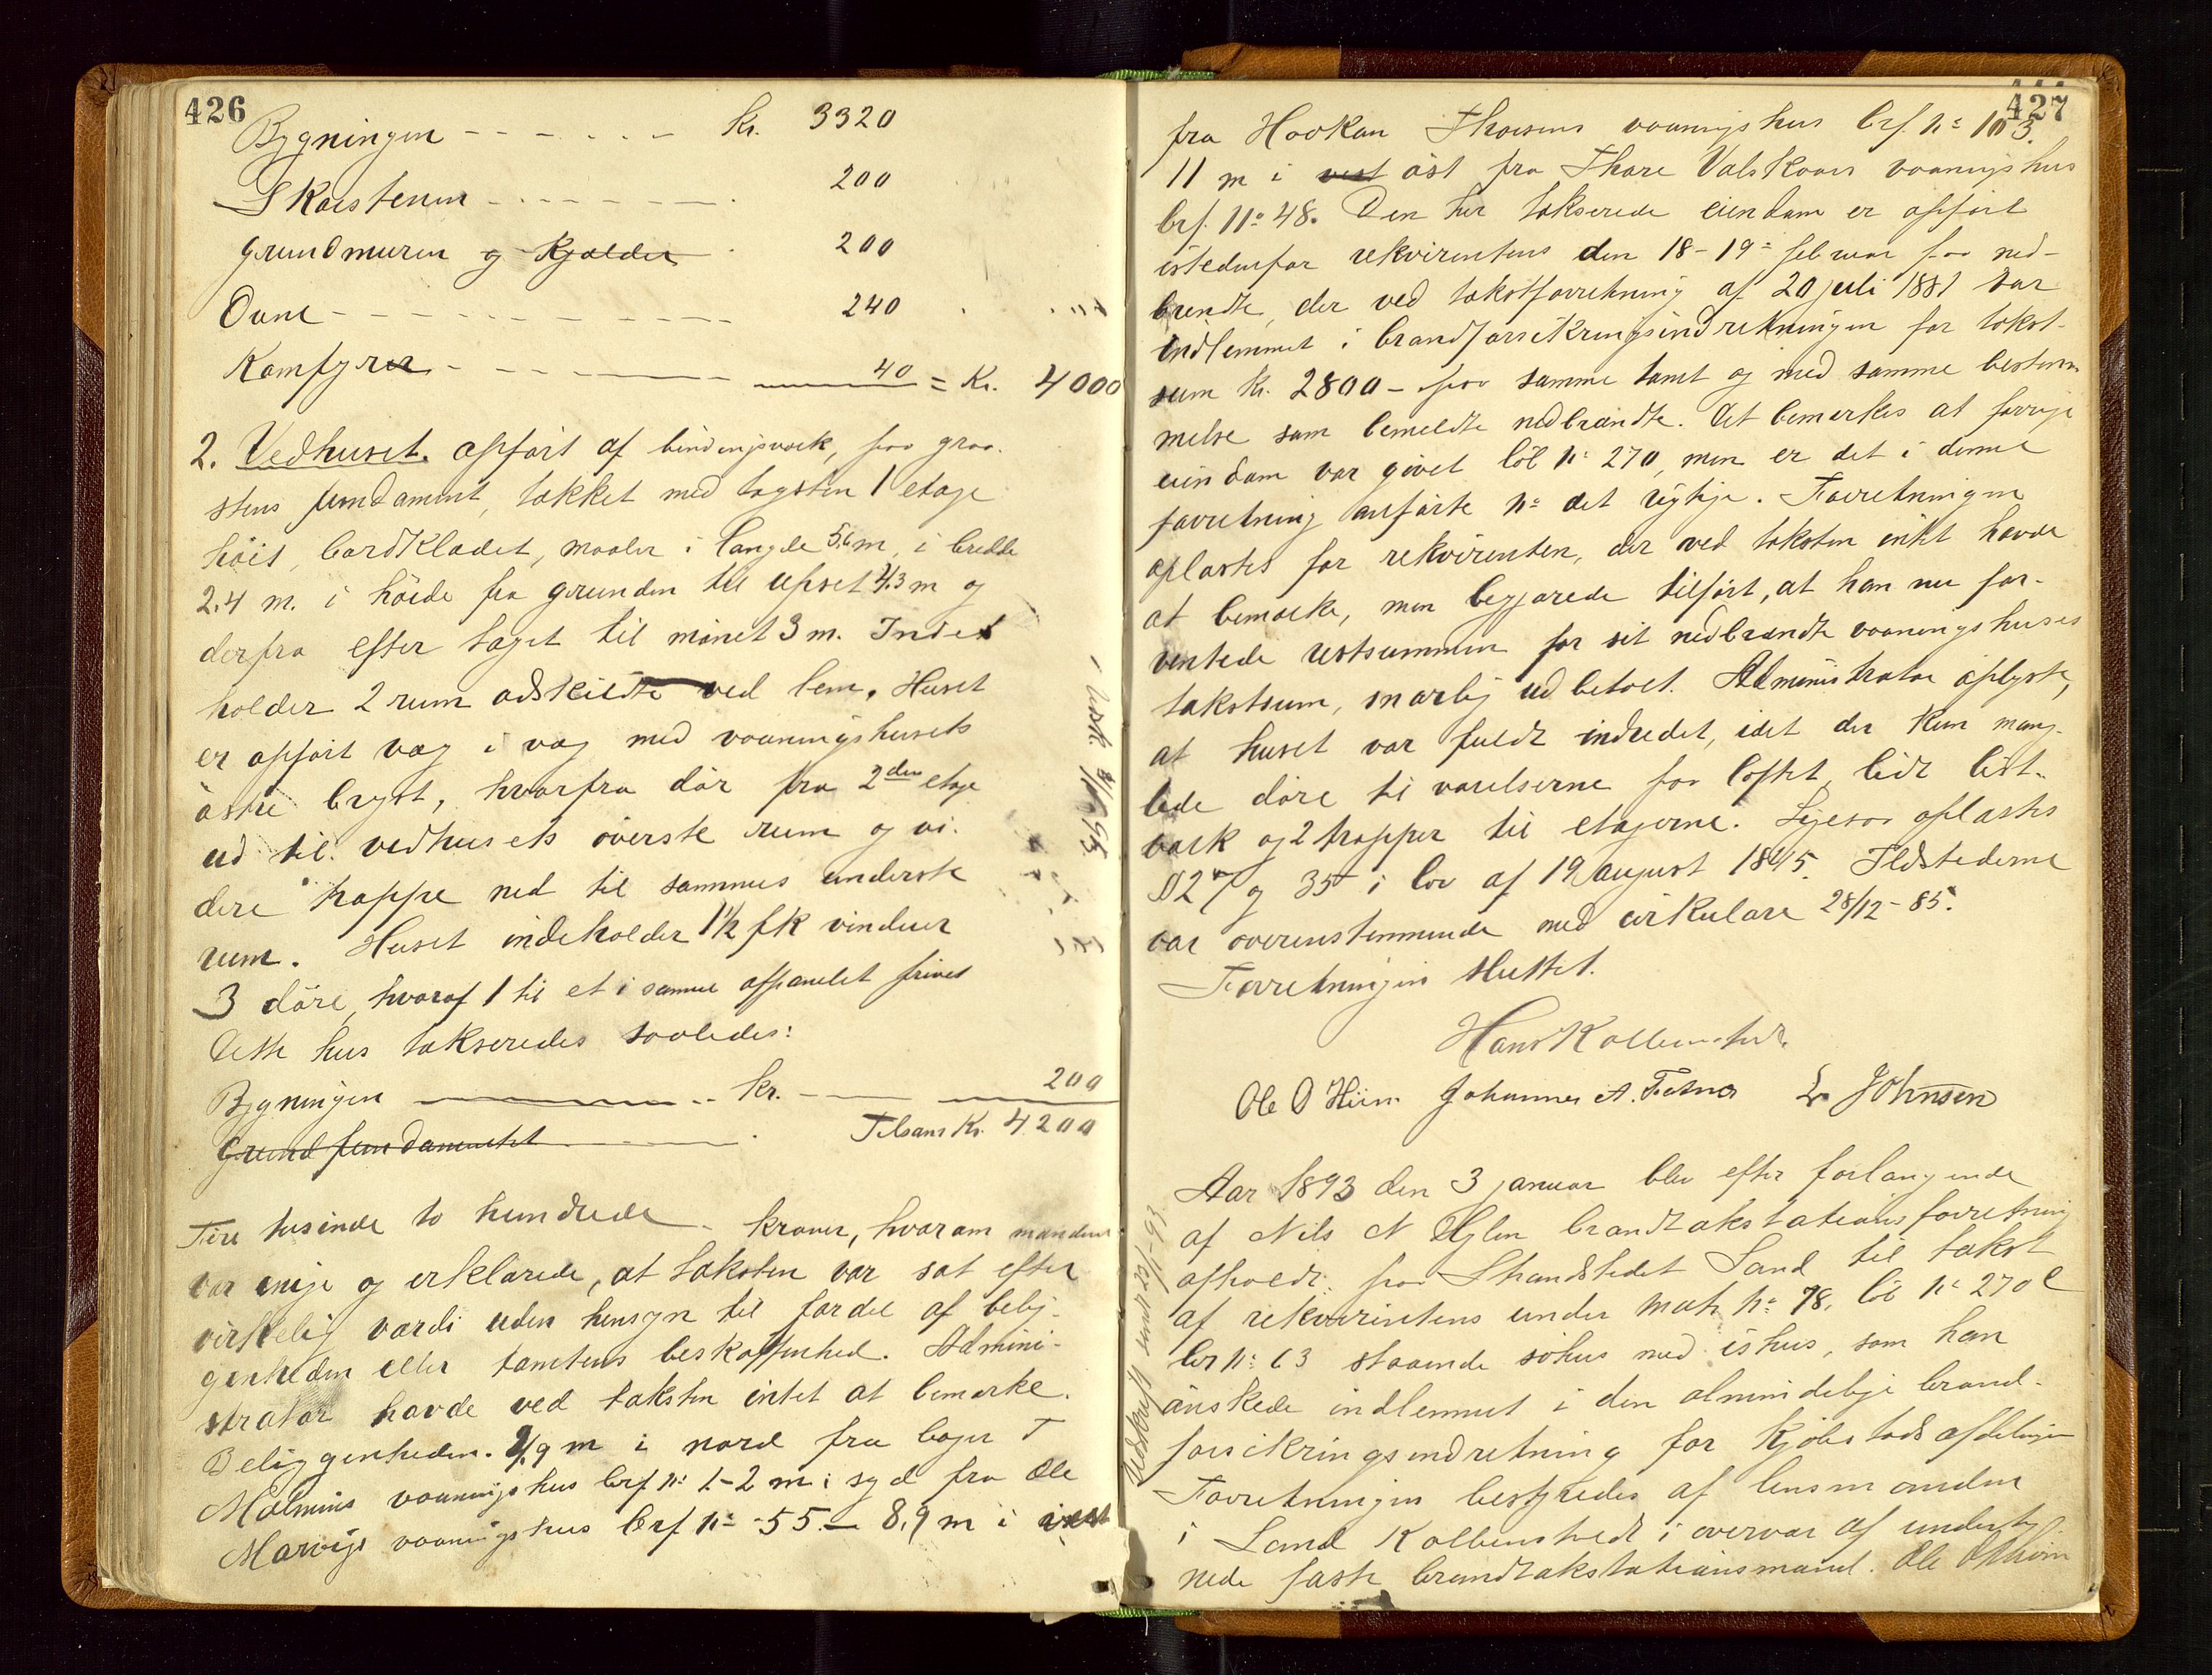 426
Bygningen - - - - - - kr. 3320
Skorstenen - - - - - - - 200
Grundmuren og Kjælder 200
Ovne - - - - - - - - - 240
Komfyrer - - - - 40 = Kr. 4000
2. Vedhuset. opført af bindingsværk, paa graa-
stens fundament, tækket med tagsten 1 etage
høit, bordklædet, maaler i længde 5,6 m, i bredde
2.4 m. i høide fra grunden til upset 4.3 m og
derfra efter taget til mønet 3 m. Inde-
holder 2 rum adskildte ved lem. Huset
er opført væg i væg med vaaningshusets
østre bryst, hvorfra dør fra 2den etage
ud til vedhusets øverste rum og vi-
dere trappe ned til sammes underste
rum. Huset indeholder 1 1/2 fk vinduer
3 døre, hvoraf 1 til et i samme afpanelet privet
Dette hus takseredes saaledes:
Bygningen - - kr. - 200
Grundfundamentet - - Tilsam Kr. 4200
Fire tusinde to hundrede - kroner, hvorom mændene
var enige og erklærede, at taksten var sat efter
virkelig værdi uden hensyn til fordel af belig-
genheden eller tomtens beskaffenhed. Admini-
strator havde ved taksten intet at bemærke.
Beliggenheden. 2,9 m i nord fra T
Malmins vaaningshus brf no 1 - 2 m i syd fra Ole
Marvigs vaaningshus brf no 55 - 8,9 m i vest
Udsk. 55
427
fra Haakan Thorsens vaaningshus brf. no 103.
11 m i vest øst fra Thore Valskaars vaaningshus
brf. no 48. Den her takserede eiendom er opført
istedenfor rekvirentens den 18-19 februar paa ned-
brændte, der ved takstforretning af 20 juli 1881 var
indlemmet i brandforsikringsindretningen for takst-
sum kr. 2800 - paa samme tomt og med samme bestem-
melse som bemeldte nedbrændte. Det bemærkes at forrige
eiendom var givet løb no 270, men er det i denne
forretning anførte no det rigtige. Forretningen
oplæstes for rekvirenten, der ved taksten intet havde
at bemærke, men begjærede tilført, at han nu for-
ventede restsummen for sit nedbrændte vaaningshuses
takstsum, snarlig udbetalt. Administrator oplyste,
at huset var fuldt indredet, idet der kun mang-
lede døre til værelserne paa loftet, lidt list-
værk og 2 trapper til etagerne. Ligesaa oplæstes
§§ 27 og 35 i lov af 19 august 1845. Ildstederne
var overensstemmende med cirkulære 28/12-85.
Forretningen sluttet.
Hans Kolbenstvedt.
Ole O Hiim Johannes A. Fotnes L. Johnsen
Aar 1893 den 3 januar blev efter forlangende
af Nils N Hylen brandtakstationsforretning
afholdt paa Strandstedet Sand til takst
af rekvirentens under matr no 78, løb no 270 l
br no 63 staaende søhus med ishus, som han
ønskede indlemmet i den almindelige brand-
forsikringsindretning for Kjøbstadsafdelingen
Forretningen bestyredes af lensmanden
i Sand Kolbenstvedt i overvær af underteg-
nede faste brandtakstationsmænd. Ole O Hiim
Udskrift sendt 23/1-93